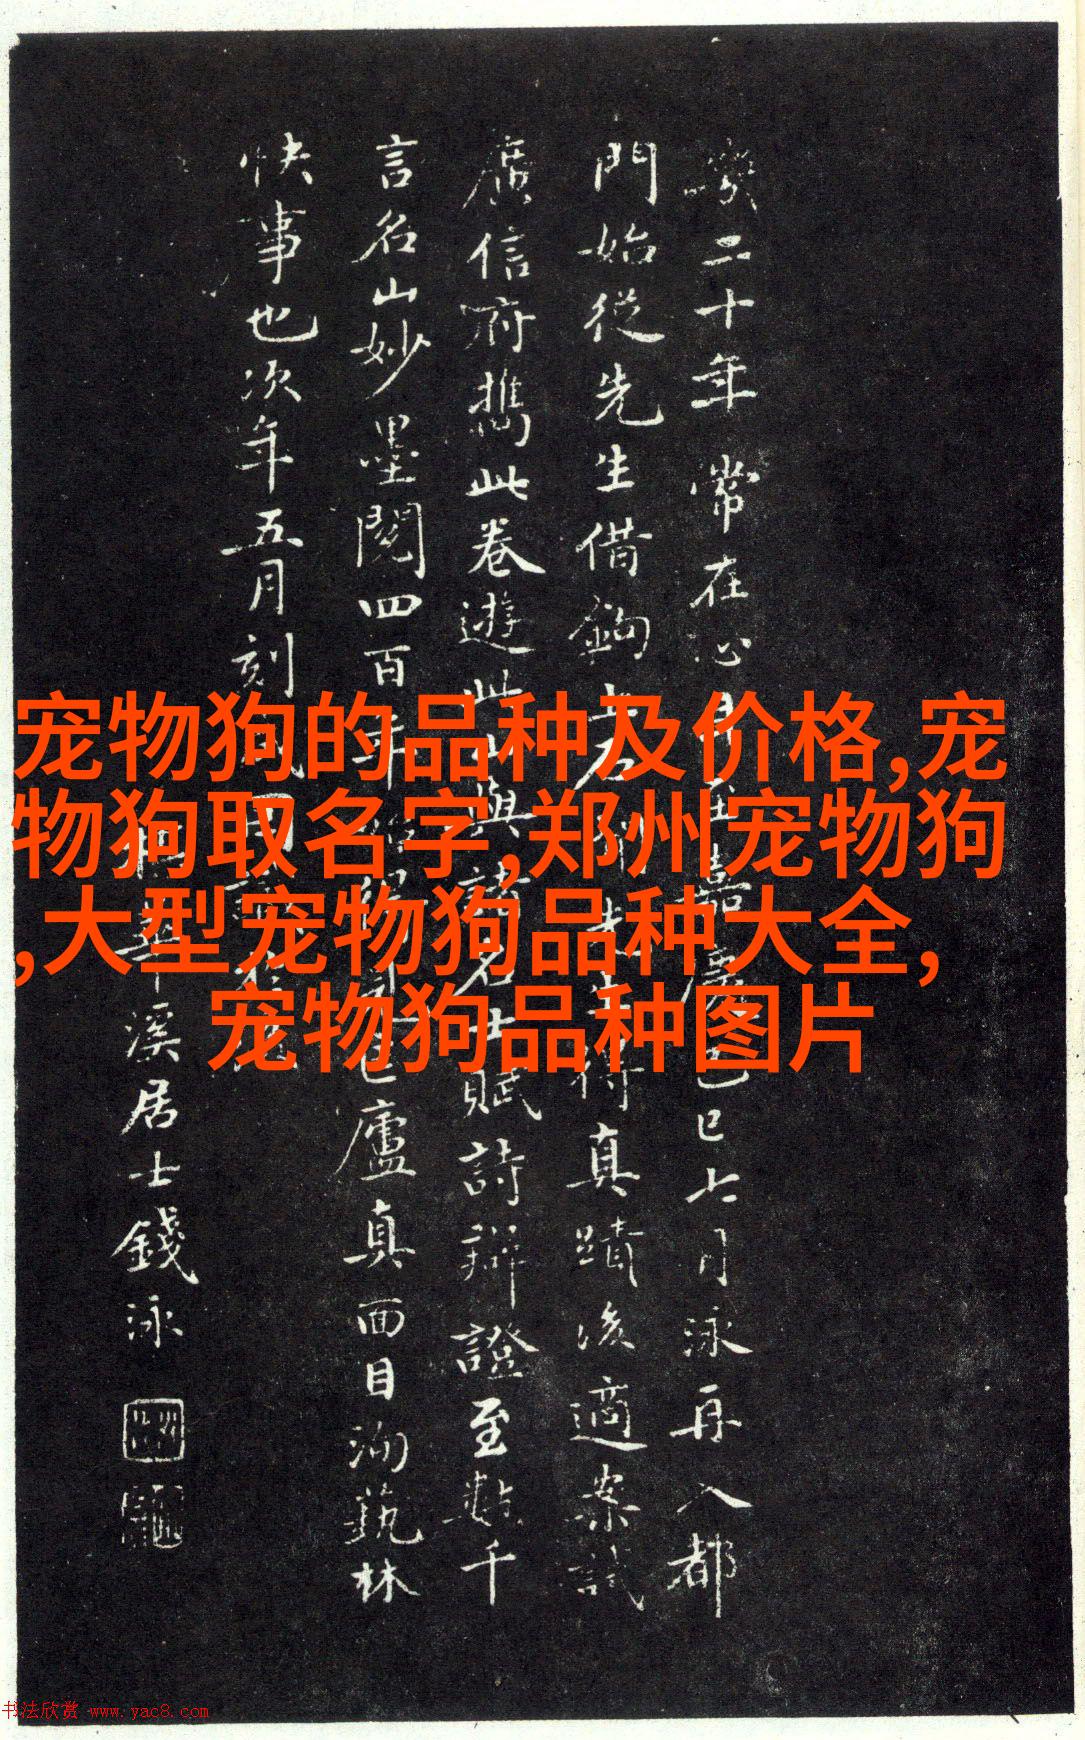 宠物狗的品种及价格,宠
物狗取名字,郑州宠物狗
,大型宠物狗品种大全,
宠物狗品种图片
二十年常在心目至嘉慶己巳七月泳再入都
門始從先生借鉤先得真蹟後適案試
廣信府攜此卷遊此與諸名士賦詩辯證至數千
言名山妙墨閱四百年廬真面目洵藝林
快事也次年五月刻
溪居士錢泳
书法欣赏 www.yac8.com